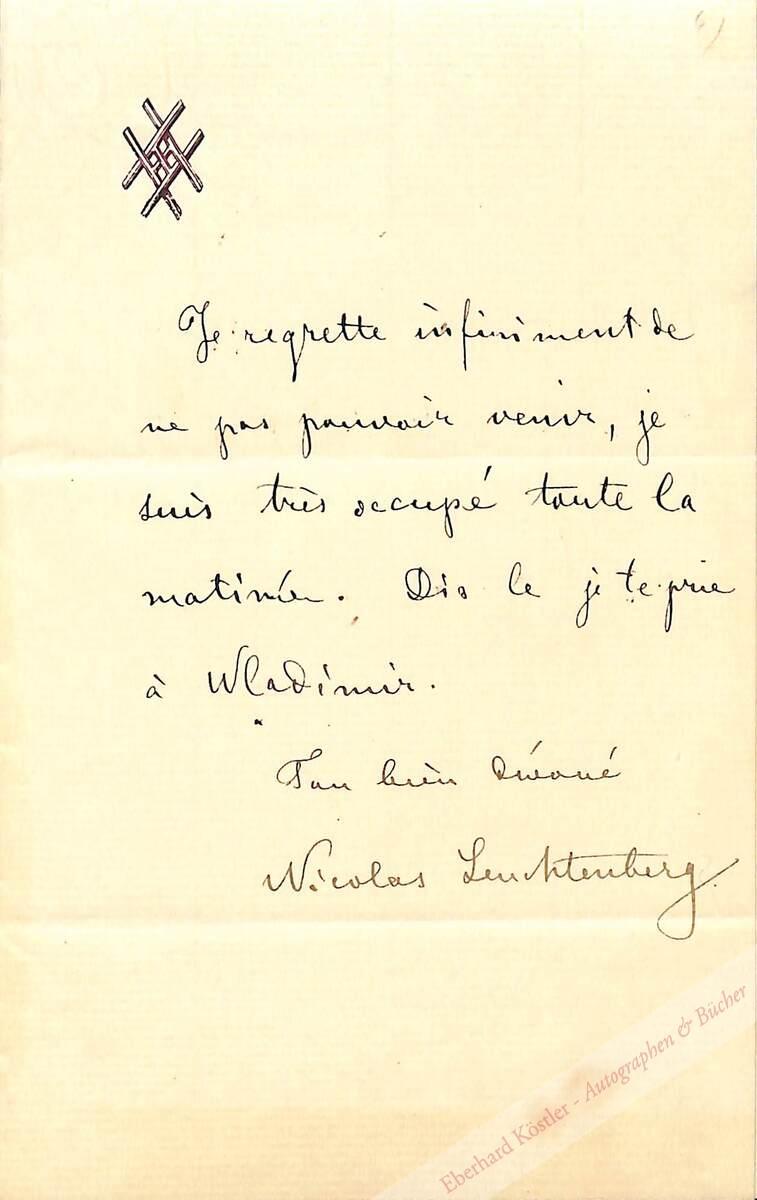 Je regrette infiniment de
ne pas pouvoir venir, je
suis très occupé toute la
matinée. Dis le je te prie
à Wladimir.
Ton bien dévoué
Nicolas Leuchtenberg.
Eberhard Köstler - Autographen & Bücher